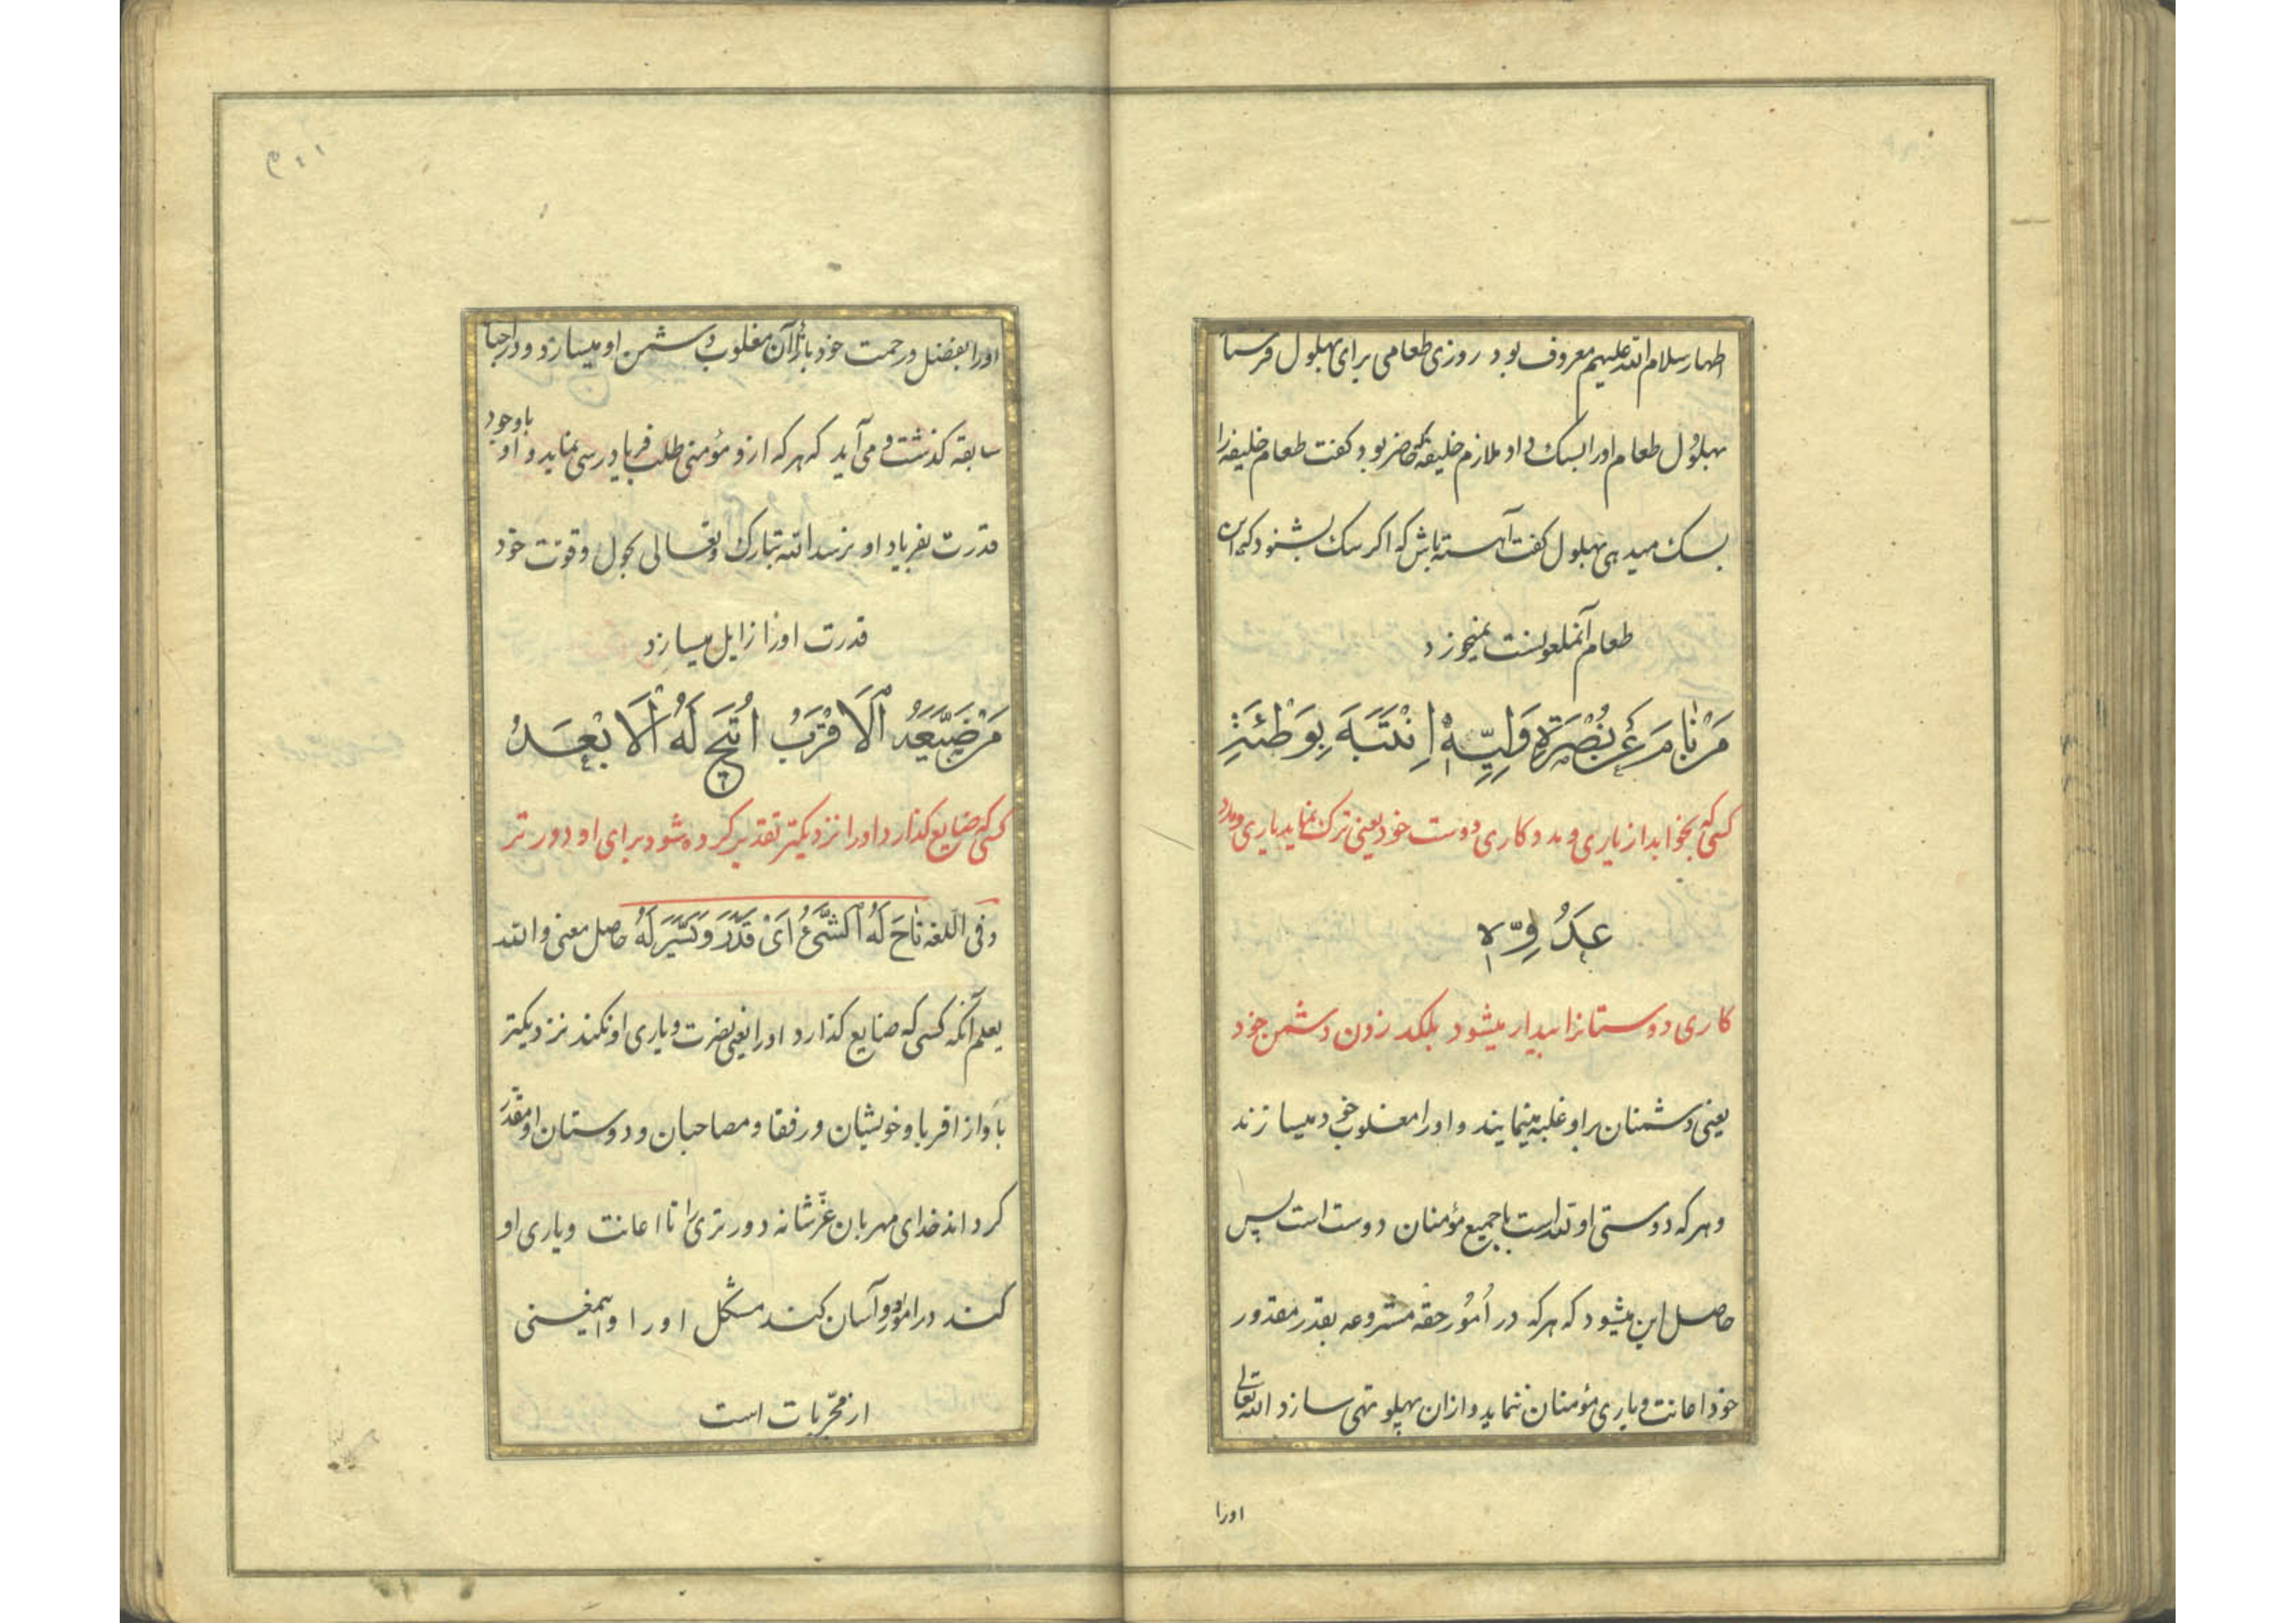 اطهار سلام الله علیهم معروف بود روزی طعامی برای بهلول فرستا
بهلول طعام او را بسک داد ملازم خلیفه که حاضر بود کفت طعام خلیفه را
بسک میدهی بهلول کفت آهسته باش که اکر سک بشنود که این
طعام آنملعونست نمیخورد
مَنْ نٰامَ عَنْ نُصْرَةِ وَلِیِّهِ اِنْتَبَهَ بِوَطْئَةِ
کسی که بخوابد از یاری و مدد کاری دوست خود یعنی ترک نماید یاری و مدد
عَدُوِّهِ
کاری دوستانرا بیدار میشود بلکد زدن دشمن خود
یعنی دشمنان براو غلبه مینمایند و اورا مغلوب خود میسازند
و هر که دوستی او تعداست با جمیع مؤمنان دوست است پس
حاصل این میشود که هر که در اُمُور حقه مشروعه بقدر مقدور
خود اعانت و یاری مؤمنان ننماید و ازان پهلو تهی سازد الله تعالی
اورا
اورا بفضل و رحمت خود باثرآن مغلوب دشمن او میسازد و در
سابقه کذشت و می آید که هر که ازو مؤمنی طلب فریادرسی نماید و او باوجود
قدرت بفریاد او نرسد الله تبارک و تعالی بحول و قوت خود
قدرت اورا زایل میسازد
مَنْ ضَیَّعَهُ الْاَقْرَبُ اُتیحَ لَهُ الْاَبْعَدُ
کسی که ضایع کذارد اورا نزدیکتر تقدیر کرده شود برای او دورتر
و فی اللغه تٰاحَ لَهُ الشَّیْءُ اَیْ قَدَّرَ وَ یَسَّرَ لَهُ حاصل معنی والله
یعلم آنکه کسی که ضایع کذارد اورا یعنی نصرت و یاری او نکند نزدیکتر
باو از اقربا و خویشان و رفقا و مصاحبان و دوستان او مقدر
کرداند خدای مهربان عزّ شانه دورتری را تا اعانت و یاری او
کند در امور او و آسان کند مشکل او را و اینمعنی
از مجرّبات است